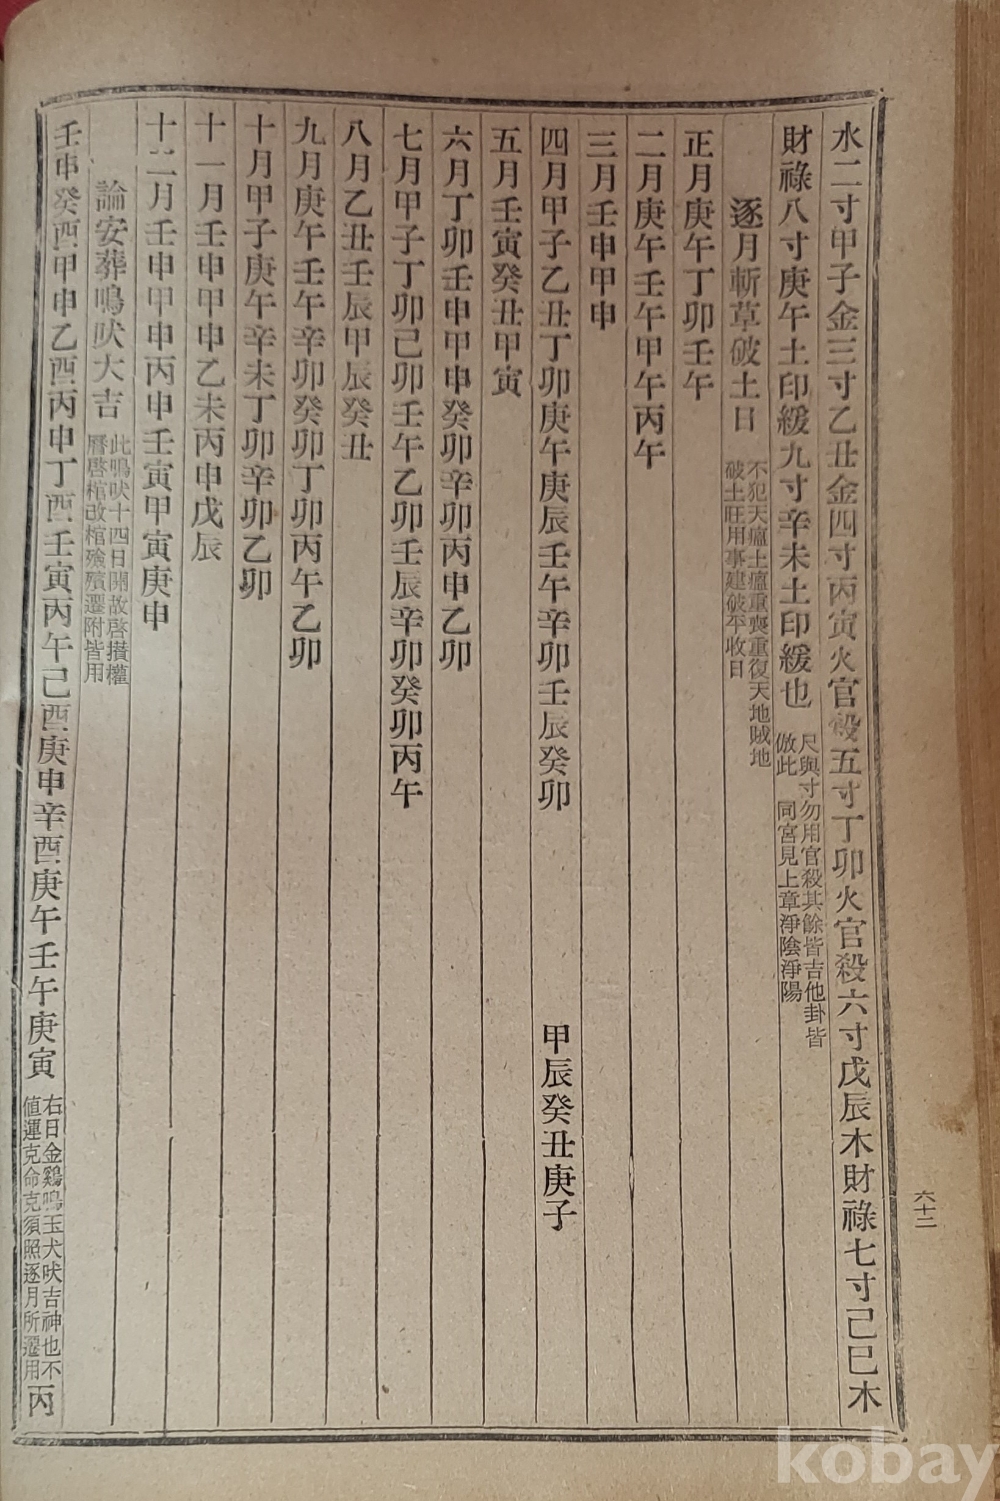 水二寸甲子金三寸乙丑金四寸丙寅火官殺五寸丁卯火官殺六寸戊辰木財祿七寸己巳木
財祿八寸庚午土印緩九寸辛未土印緩也
尺與寸勿用官殺其餘皆吉他卦皆
倣此 同宮見上章淨陰淨陽
逐月斬草破土日
不犯天瘟土瘟重喪重復天地賊地
破土旺用事建破平收日
正月庚午丁卯壬午
二月庚午壬午甲午丙午
三月壬申甲申
四月甲子乙丑丁卯庚午庚辰壬午辛卯壬辰癸卯 甲辰癸丑庚子
五月壬寅癸丑甲寅
六月丁卯壬申甲申癸卯辛卯丙申乙卯
七月甲子丁卯己卯壬午乙卯壬辰辛卯癸卯丙午
八月乙丑壬辰甲辰癸丑
九月庚午壬午辛卯癸卯丁卯丙午乙卯
十月甲子庚午辛未丁卯辛卯乙卯
十一月壬申甲申乙未丙申戊辰
十二月壬申甲申丙申壬寅甲寅庚申
論安葬鳴吠大吉
此鳴吠十四日開故啓攅權
曆啓棺改棺殮殯遷附皆用
壬申癸酉甲申乙酉丙申丁酉壬寅丙午己酉庚申辛酉庚午壬午庚寅
右日金鷄鳴玉犬吠吉神也不
値運克命克須照逐月所選用
丙
六十二
kobay